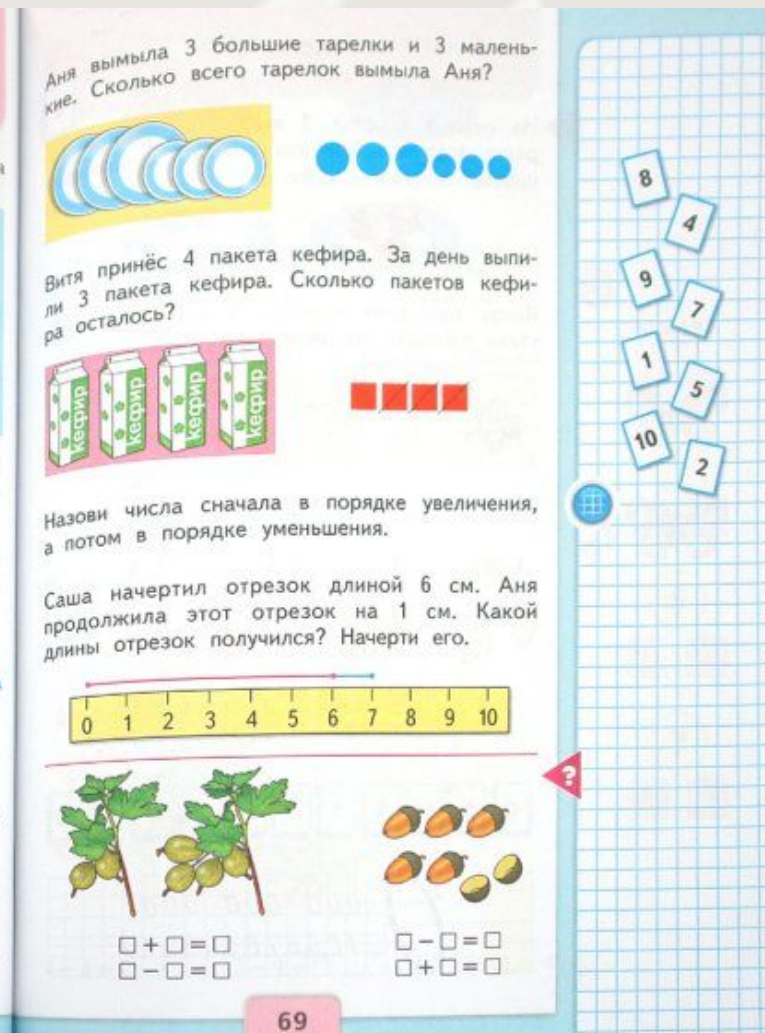 Аня вымыла 3 большие тарелки и 3 малень-
кие. Сколько всего тарелок вымыла Аня?
Витя принёс 4 пакета кефира. За день выпи-
ли 3 пакета кефира. Сколько пакетов кефи-
ра осталось?
кефир кефир кефир кефир
8
4
9
7
1
5
10
2
Назови числа сначала в порядке увеличения,
а потом в порядке уменьшения.
Саша начертил отрезок длиной 6 см. Аня
продолжила этот отрезок на 1 см. Какой
длины отрезок получился? Начерти его.
0 1 2 3 4 5 6 7 8 9 10
?
□+□=□ □-□=□
□-□=□ □+□=□
69